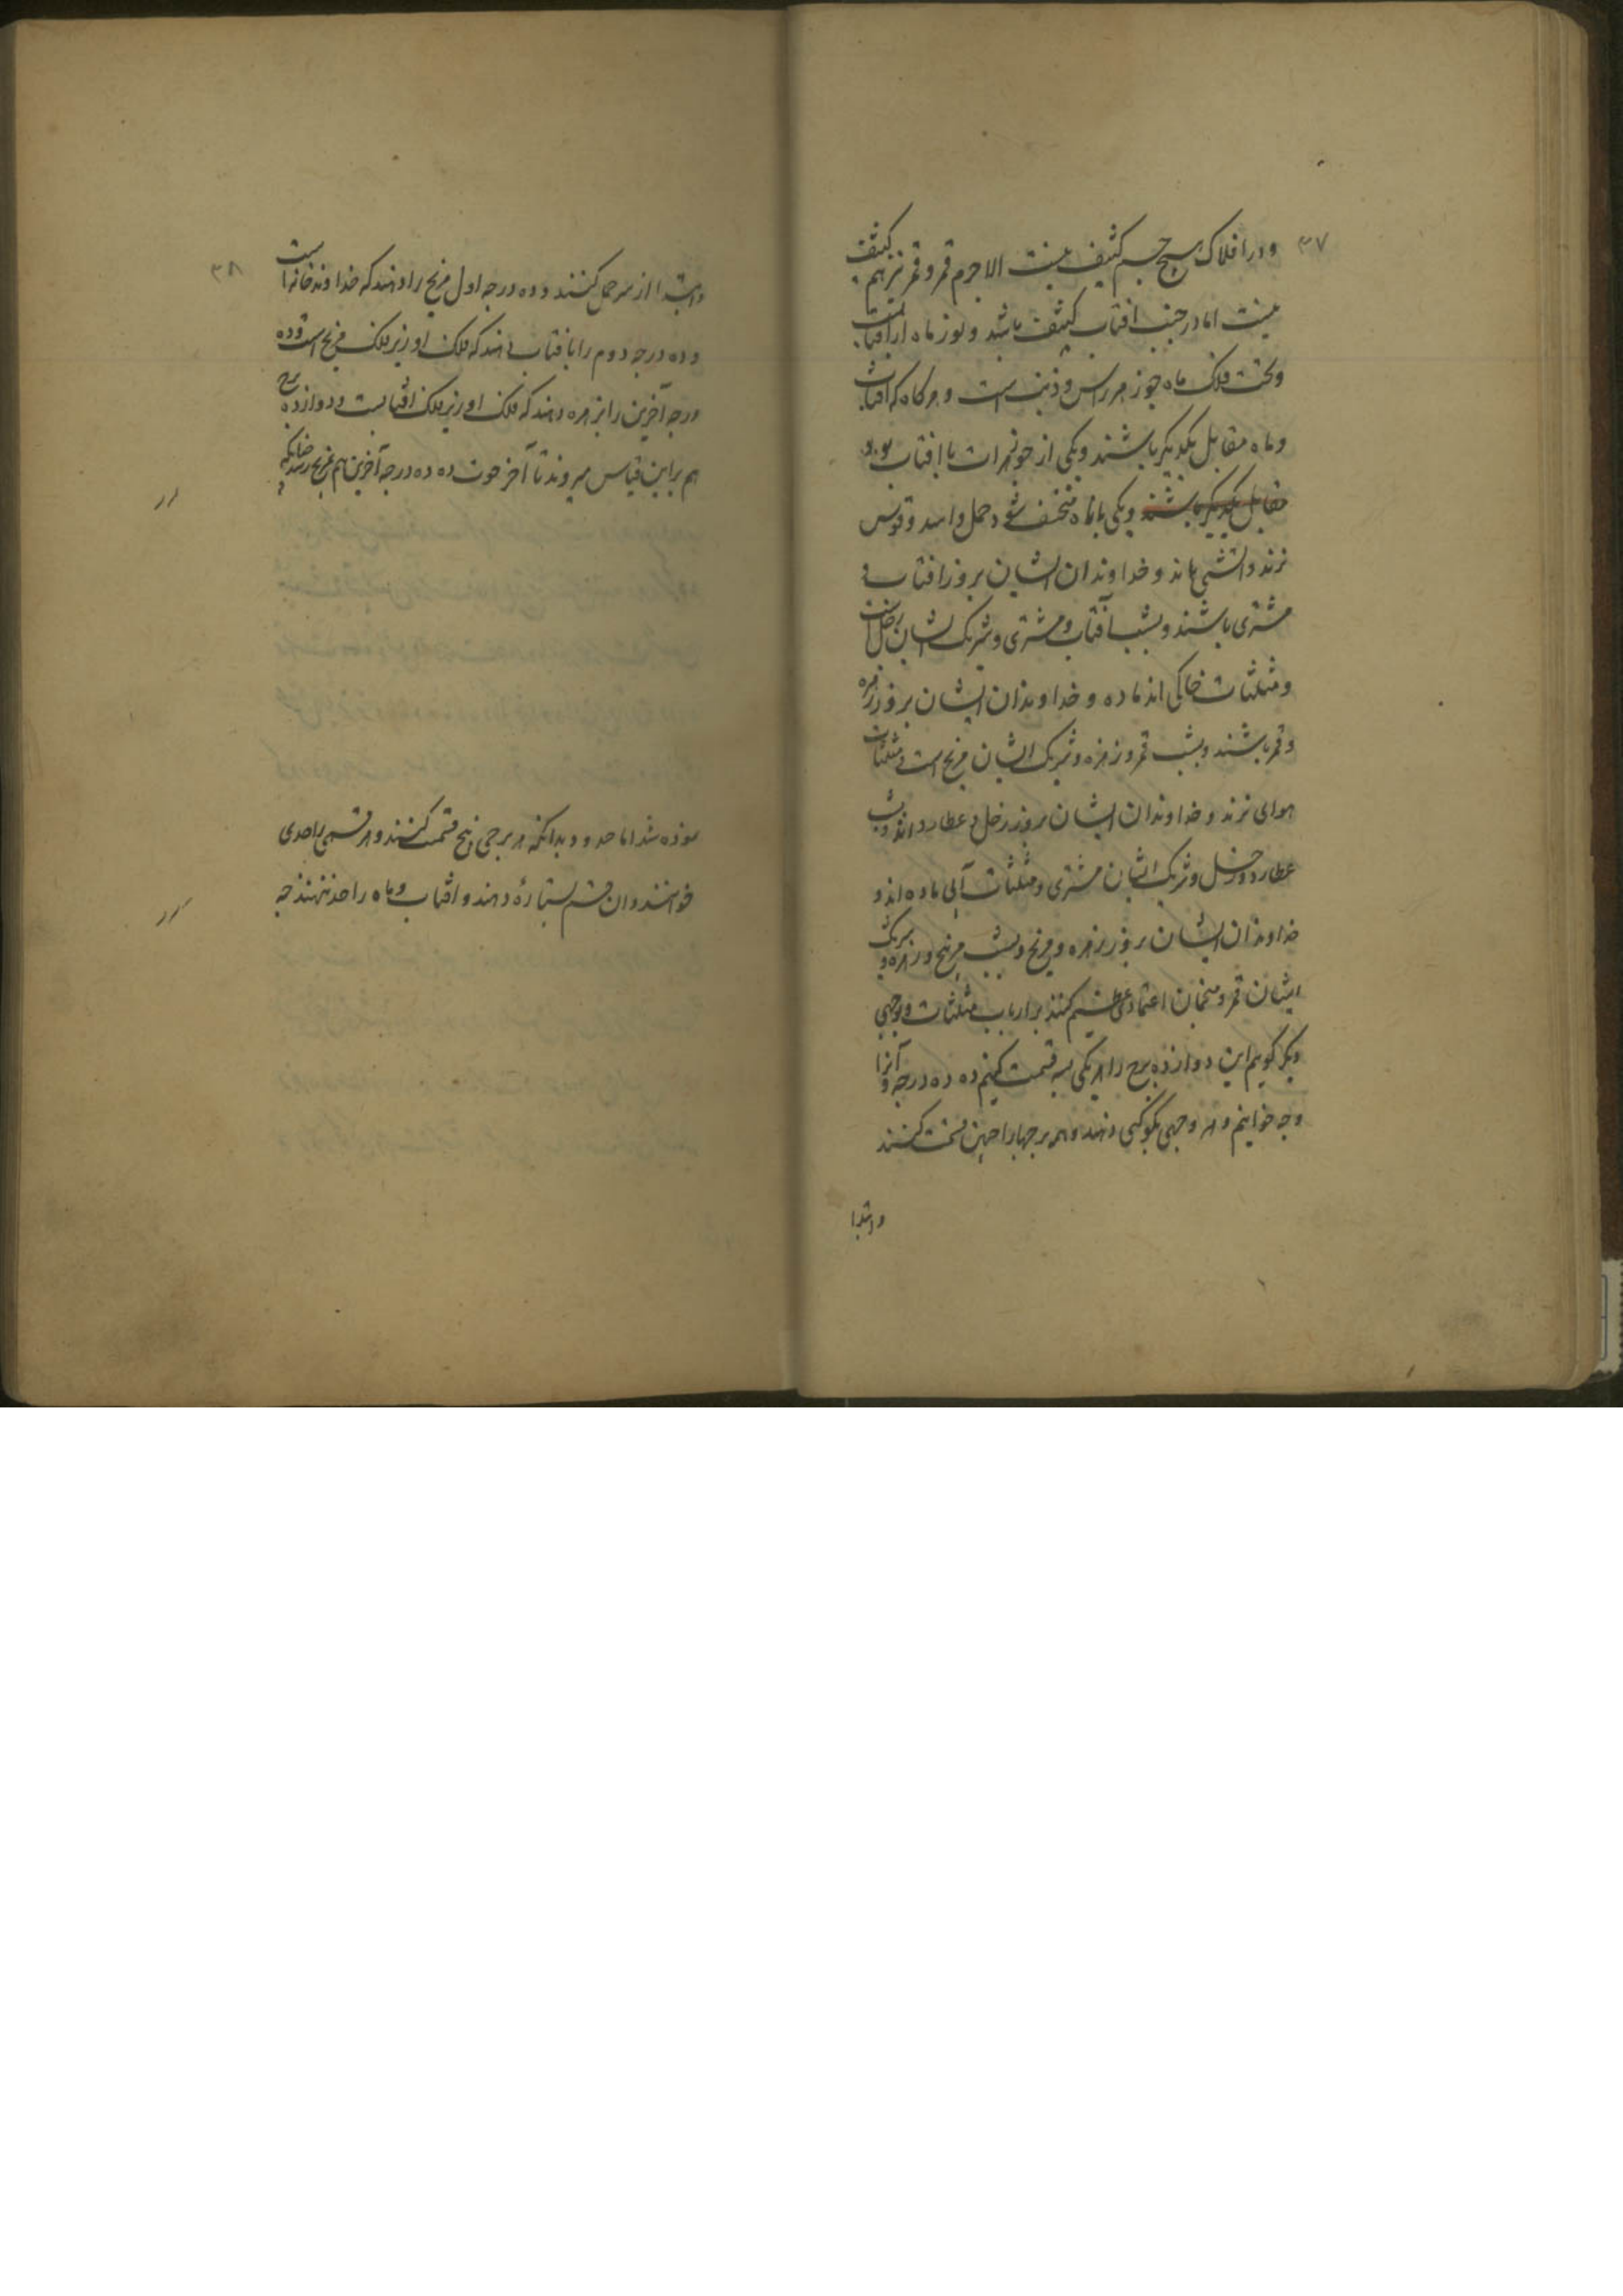 ۳۷
و در افلاک هیچ جسم کثیف نیست الا جرم قمر و قمر نیز هم کثیف
نیست اما در جنب افتاب کثیف باشد و نور ماه از افتابست
و تحت فلک ماه جوزهر راس و ذنب است و هرکاه که افتاب
و ماه مقابل یکدیکر باشند و یکی از جوزهرات با افتاب بود
مقابل یکدیکر باشند و یکی با ماه منخسف شود حمل و اسد و قوس
نرند و اتشی اند و خداوندان ایشان بروز افتاب و
مشتری باشند و بشب آفتاب و مشتری و شریک ایشان زحل است
و مثلثات خاکی اند ماده و خداوندان ایشان بروز زهره
و قمر باشند و بشب قمر و زهره و شریک ایشان مریخ است و مثلثات
هوای نرند و خداوندان ایشان بروز زحل و عطارد اند و بشب
عطارد و زحل و شریک ایشان مشتری و مثلثات آبی ماده اند و
خداوندان ایشان بروز زهره و مریخ و بشب مریخ و زهره و شریک
ایشان قمر و منجمان اعتماد عظیم کنند بر ارباب مثلثات و بوجهی
دیکر کویم این دوازده برج را هر یکی سه قسمت کنیم ده ده درجه و آنرا
وجه خوانیم و هر وجهی بکوکبی دهند و همه برجها را چنین قسمت کنند
و ابتدا
۳۸
و ابتدا از سر حمل کنند و ده درجه اول مریخ را دهند که خداوند خانه است
و ده درجه دوم را بافتاب دهند که فلک او زیر فلک مریخ است و ده
درجه آخرین را بزهره دهند که فلک او زیر فلک افتابست و دوازده برج
هم براین قیاس میروند تا آخر حوت ده ده درجه آخرین هم بمریخ رسد چنانکه
نموده شد اما حدود بدانکه هر برجی بپنج قسمت کنند و هر قسمی را حدی
خوانند و ان قسم بستارهٔ دهند و افتاب و ماه را حد ننهند چه